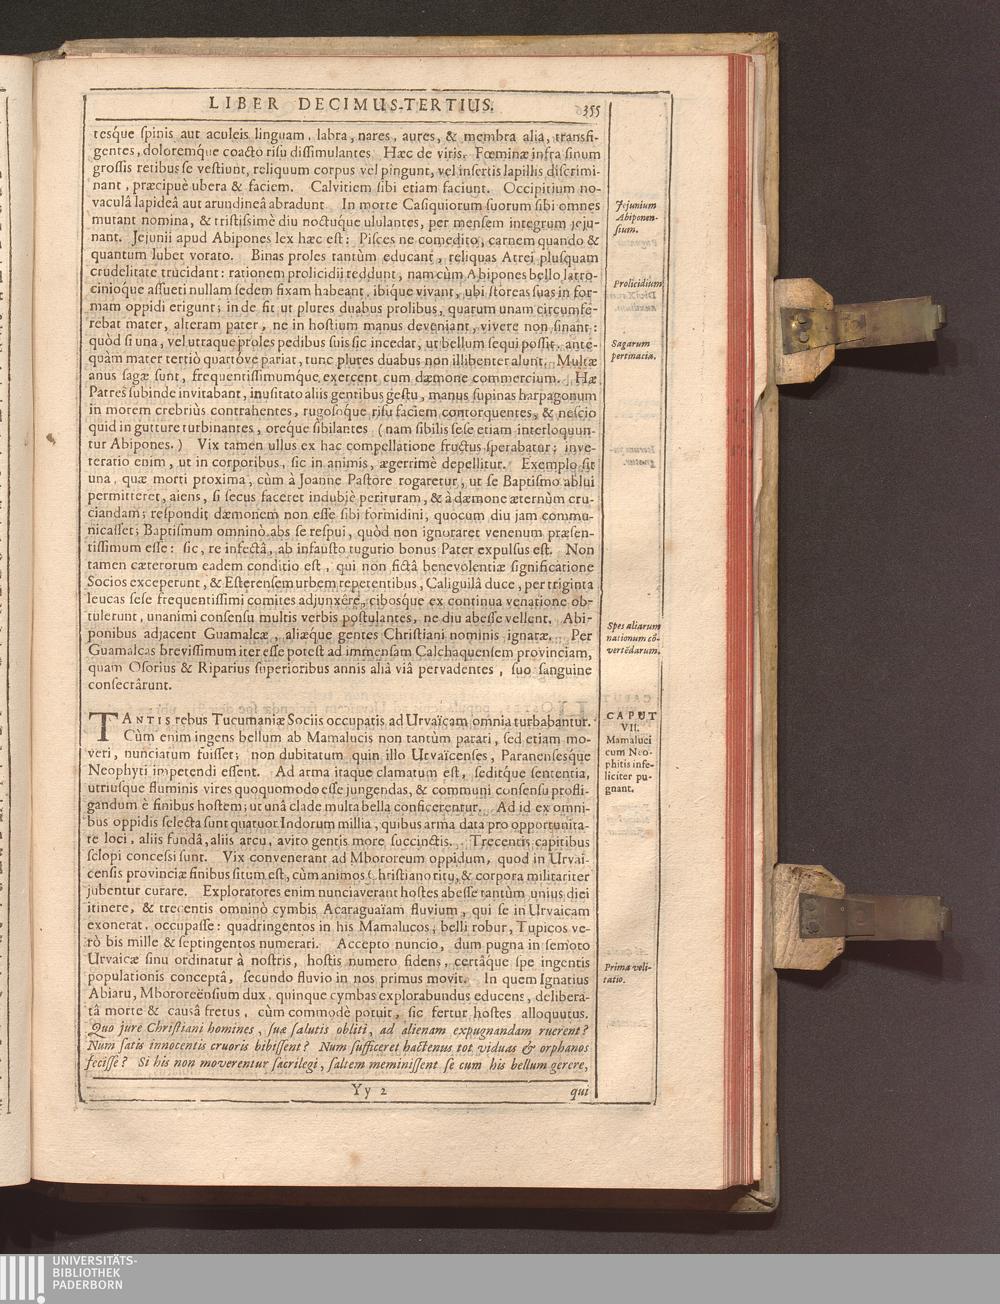 LIBER DECIMUS-TERTIUS. 355
tesque spinis aut aculeis linguam, labra, nares, aures, & membra alia, transfi-
gentes, doloremque coacto risu dissimulantes Hæc de viris. Fœminæ infra sinum
grossis retibus se vestiunt, reliquum corpus vel pingunt, vel insertis lapillis discrimi-
nant, præcipuè ubera & faciem. Calvitiem sibi etiam faciunt. Occipitium no-
vaculâ lapideâ aut arundineâ abradunt In morte Casiquiorum suorum sibi omnes
mutant nomina, & tristissimè diu noctuque ululantes, per mensem integrum jeju-
nant. Jejunii apud Abipones lex hæc est: Pisces ne comedito, carnem quando &
quantum lubet vorato. Binas proles tantùm educant, reliquas Atrei plusquam
crudelitate trucidant: rationem prolicidii reddunt, nam cùm Abipones bello latro-
cinióque assueti nullam sedem fixam habeant, ibique vivant, ubi storeas suas in for-
mam oppidi erigunt; inde fit ut plures duabus prolibus, quarum unam circumfe-
rebat mater, alteram pater, ne in hostium manus deveniant, vivere non sinant:
quòd si una, vel utraque proles pedibus suis sic incedat, ut bellum sequi possit, ante-
quàm mater tertiò quartóve pariat, tunc plures duabus non illibenter alunt. Multæ
anus sagæ sunt, frequentissimumque exercent cum dæmone commercium. Hæ
Patres subinde invitabant, inusitato aliis gentibus gestu, manus supinas harpagonum
in morem crebriùs contrahentes, rugosoque risu faciem contorquentes, & nescio
quid in gutture turbinantes, oreque sibilantes (nam sibilis sese etiam interloquun-
tur Abipones.) Vix tamen ullus ex hac compellatione fructus sperabatur; inve-
teratio enim, ut in corporibus, sic in animis, ægerrimè depellitur. Exemplo sit
una, quæ morti proxima, cùm à Joanne Pastore rogaretur, ut se Baptismo ablui
permitteret, aiens, si secus faceret indubiè perituram, & à dæmone æternùm cru-
ciandam; respondit dæmonem non esse sibi formidini, quocum diu jam commu-
nicasset; Baptismum omninò abs se respui, quòd non ignoraret venenum præsen-
tissimum esse: sic, re infectâ, ab infausto tugurio bonus Pater expulsus est. Non
tamen cæterorum eadem conditio est, qui non fictâ benevolentiæ significatione
Socios exceperunt, & Esterensem urbem repetentibus, Caliguilâ duce, per triginta
leucas sese frequentissimi comites adjunxêre, cibosque ex continua venatione ob-
tulerunt, unanimi consensu multis verbis postulantes, ne diu abesse vellent. Abi-
ponibus adjacent Guamalcæ, aliæque gentes Christiani nominis ignaræ. Per
Guamalcas brevissimum iter esse potest ad immensam Calchaquensem provinciam,
quam Osorius & Riparius superioribus annis aliâ viâ pervadentes, suo sanguine
consecrârunt.
Jejunium
Abiponen-
sium.
Prolicidium
Sagarum
pertinacia.
Spes aliarum
nationum cō-
vertēdarum.
TANTIS rebus Tucumaniæ Sociis occupatis ad Urvaïcam omnia turbabantur.
Cùm enim ingens bellum ab Mamalucis non tantùm parari, sed etiam mo-
veri, nunciatum fuisset; non dubitatum quin illo Urvaïcenses, Paranensesque
Neophyti impetendi essent. Ad arma itaque clamatum est, seditque sententia,
utriusque fluminis vires quoquomodo esse jungendas, & communi consensu profli-
gandum è finibus hostem; ut unâ clade multa bella conficerentur. Ad id ex omni-
bus oppidis selecta sunt quatuor Indorum millia, quibus arma data pro opportunita-
te loci, aliis fundâ, aliis arcu, avito gentis more succinctis. Trecentis capitibus
sclopi concessi sunt. Vix convenerant ad Mbororeum oppidum, quod in Urvai-
censis provinciæ finibus situm est, cùm animos Christiano ritu, & corpora militariter
jubentur curare. Exploratores enim nunciaverant hostes abesse tantùm unius diei
itinere, & trecentis omninò cymbis Acaraguaïam fluvium, qui se in Urvaicam
exonerat, occupasse: quadringentos in his Mamalucos, belli robur, Tupicos ve-
rò bis mille & septingentos numerari. Accepto nuncio, dum pugna in semoto
Urvaicæ sinu ordinatur à nostris, hostis numero fidens, certâque spe ingentis
populationis conceptâ, secundo fluvio in nos primus movit. In quem Ignatius
Abiaru, Mbororeënsium dux, quinque cymbas explorabundus educens, delibera-
tâ morte & causâ fretus, cùm commodè potuit, sic fertur hostes alloquutus.
Quo jure Christiani homines, suæ salutis obliti, ad alienam expugnandam ruerent?
Num satis innocentis cruoris bibissent? Num sufficeret hactenus tot viduas & orphanos
fecisse? Si his non moverentur sacrilegi, saltem meminissent se cum his bellum gerere,
CAPUT
VII.
Mamaluci
cum Neo-
phitis infe-
liciter pu-
gnant.
Prima veli-
tatio.
Yy 2 qui
UNIVERSITÄTS-
BIBLIOTHEK
PADERBORN